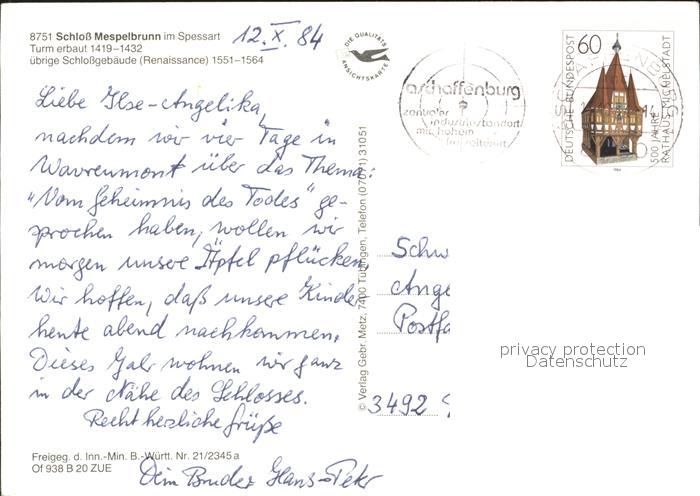 8751 Schloß Mespelbrunn im Spessart
Turm erbaut 1419–1432
übrige Schloßgebäude (Renaissance) 1551–1564
12.X.84
DIE QUALITÄTS
ANSICHTSKARTE
aschaffenburg
zentraler
industriestandort
mit hohem
freizeitwert
DEUTSCHE BUNDESPOST
60
500 JAHRE
RATHAUS MICHELSTADT
1984
Liebe Ilse-Angelika,
nachdem wir vier Tage in
über das Thema:
"Vom Geheimnis des Todes" ge-
sprochen haben, wollen wir
morgen unsere Äpfel pflücken.
Wir hoffen, daß unsere Kinder
heute abend nachkommen.
Dieses Jahr wohnen wir ganz
in der Nähe des Schlosses.
Recht herzliche Grüße
Dein Bruder Hans-Peter
© Verlag Gebr. Metz, 7400 Tübingen, Telefon (07071) 31051
Schw
Ange
Postfa
3492
privacy protection
Datenschutz
Freigeg. d. Inn.-Min. B.-Württ. Nr. 21/2345 a
Of 938 B 20 ZUE